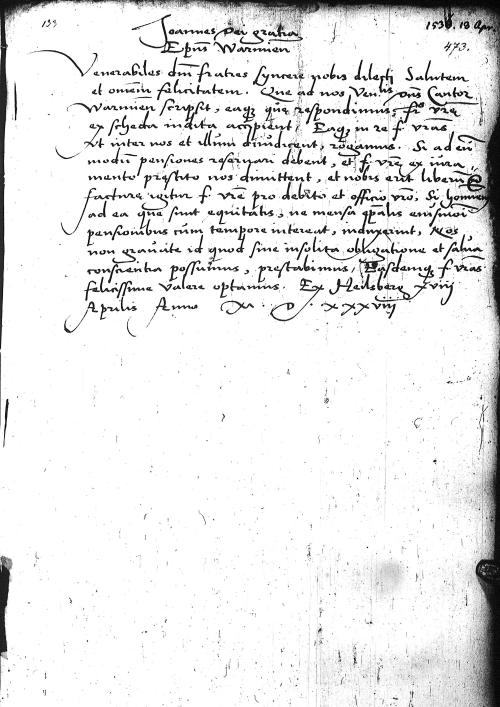 133
1538. 18 Apr.
473.
Joannes Dei gratia
Epus Warmien
Venerabiles dni fratres syncere nobis dilecti Salutem
et omnem felicitatem. Que ad nos Ven. dns Cantor
Warmien scripsit, eaque que respondimus, f. vre
ex scheda indita accipient, Eaque in re f. vras
Ut inter nos et illum diiudicent, rogamus. Si ad eum
modum pensiones reservari debent, et f. vre ex iura
mento prestito nos dimittent, et nobis erit liberum
facture igitur f. vre pro debito et officio vro, Si hominem
ad ea que sunt equitatis, ne mensa epalis eiusmodi
pensionibus cum tempore intereat, induxerint, Nos
non gravate id quod sine insolita obligatione et salva
conscientia possumus, prestabimus, Easdemque f. vras
felicissime valere optamus. Ex Heilsberg xviij
Aprilis Anno M. D. xxxviij